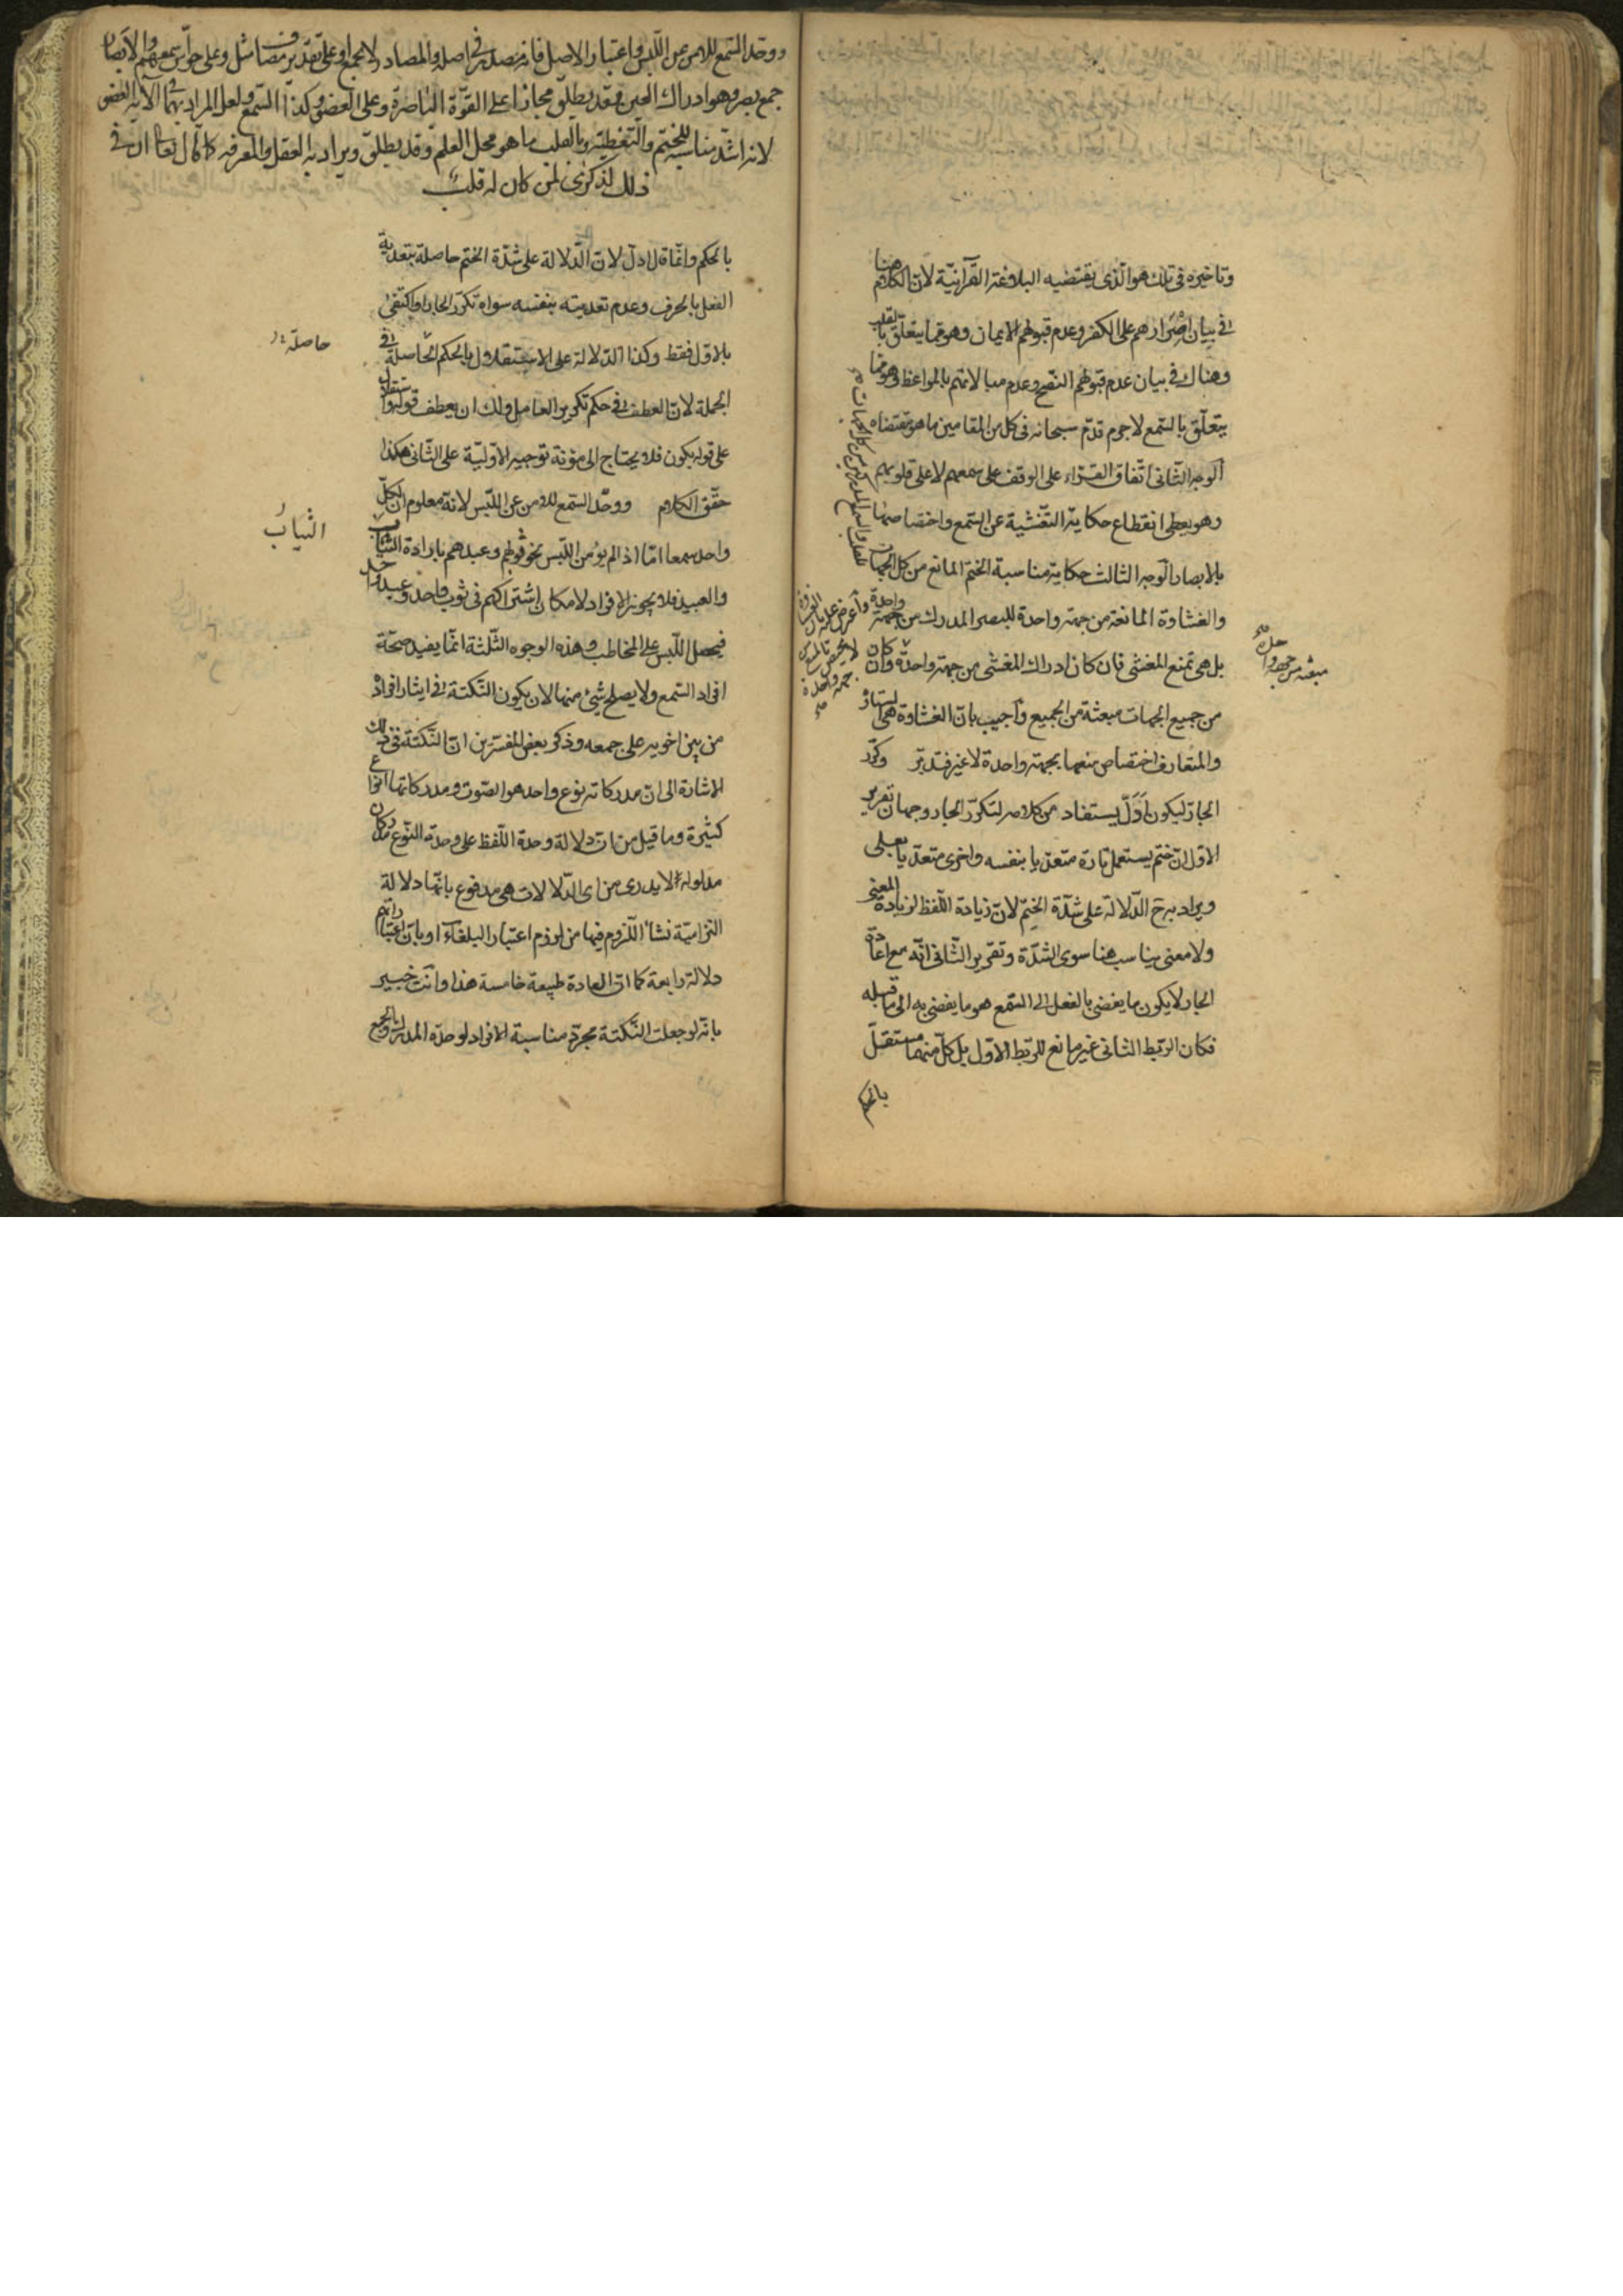 وتاخيره في تلك هو الذى يقتضيه البلاغة القرآنيّة لانّ الكلام هنا
في بيان اصرارهم على الكفر وعدم قبولهم الايمان وهو مما يتعلّق بالقلب
وهناك في بيان عدم قبولهم النصح وعدم مبالاتهم بالمواعظ وهو مما
يتعلّق بالسّمع لاجرم قدّم سبحانه فى كل من المقامين ما هو مقتضاه
الوجه الثّانى اتّفاق القرّاء على الوقف على سمعهم لا على قلوبهم
وهو يعطى انقطاع حكاية التّغشية عن السّمع واختصاصها
بالابصار الوجه الثالث حكاية مناسبة الختم المانع من كل الجهات
والغشاوة المانعة من جهة واحدة للبصر المدرك من جهة واحدة
بل هي تمنع المغشى فان كان ادراك المغشى من جهة واحدة وان كان
من جميع الجهات مبعثه من الجميع وأجيب بانّ الغشاوة هى الستار
والمتعارف اختصاص منعها بجهة واحدة لا غير فتدبّر وكرّر
الجارّ ليكون ادلّ يستفاد من كلامه لتكرّر الجار وجهان تقرير
الاوّل انّ ختم يستعمل تارة متعدّيا بنفسه واخرى متعدّيا بعلى
ويراد به ح الدّلالة على شدّة الختم لانّ زيادة اللّفظ لزيادة المعنى
ولا معنى يناسب هنا سوى الشدّة وتقرير الثّانى انّه مع اعادة
الجار لا يكون ما يفضى بالفعل الى السّمع هو ما يفضى به الى ما قبله
فكان الربط الثانى غير مانع للرّبط الاوّل بل كلّ منهما مستقلّ
بالحكم
واعرض عليه بان الغشاوة
لا تختص بالمنع من
جهة واحدة
ووحّد السّمع للامن عن اللّبس واعتبار الاصل فانه مصدر في اصله والمصادر لا تجمع او على تقدير مضاف مثل وعلى حواسّ سمعهم والابصار
جمع بصر وهو ادراك العين وقد يطلق مجازا على القوّة الباصرة وعلى العضو وكذا السّمع ولعلّ المراد بهما في الآية العضو
لانه اشدّ مناسبة للختم والتغطية وبالقلب ما هو محل العلم وقد يطلق ويراد به العقل والمعرفه كما قال تعالى ان في
ذلك لذكرى لمن كان له قلب
بالحكم وانّما قال ادلّ لانّ الدّلالة على شدّة الختم حاصلة بتعدية
الفعل بالحرف وعدم تعديته بنفسه سواء تكرّر الجار او اكتفى
بالاوّل فقط وكذا الدّلالة على الاستقلال بالحكم الحاصلة في
حاصلة
الجملة لانّ العطف في حكم تكرير العامل ولك ان تعطف قوله واستقلال
على قوله يكون فلا يحتاج الى مؤنة توجيه الاوّليّة على الثّانى هكذا
حقّق الكلام ووحّد السّمع للامن عن اللّبس لانّه معلوم انّ لكلّ
الثياب
واحد سمعا امّا اذا لم يؤمن اللّبس نحو ثوبهم وعبدهم بارادة الثّياب
والعبيد فلا يجوز الافراد لامكان اشتراكهم فى ثوب واحد وعبد واحد
فيحصل اللّبس على المخاطب وهذه الوجوه الثّلثة انّما يفيد صحّة
افراد السّمع ولا يصلح شيئ منها لان يكون النّكتة في ايثار افراده
من بين اخويه على جمعه وذكر بعض المفسّرين انّ النّكتة في ذلك
الاشارة الى انّ مدركاته نوع واحد هو الصّوت ومدركاتهما انواع
كثيرة وما قيل من انّ دلالة وحدة اللّفظ على وحدة النّوع مدركات
مدلوله لا يدرى من اى الدّلالات هي مدفوع بانّها دلالة
التزاميّة نشأ اللّزوم فيها من لزوم اعتبار البلغاء او بانّ اعتباراتهم
دلالة رابعة كما انّ العادة طبيعة خامسة هذا وانت خبير
بانّه لو جعلت النّكتة مجرّد مناسبة الافراد لوحدة المدرك والجمع